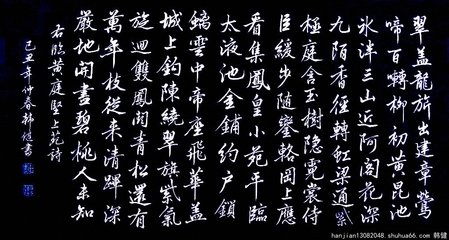 翠盖龍旂出建章鶯
啼百囀柳初黄昆池
冰泮三山近阿閣花深
九陌香徑轉虹梁通紫
極庭含玉樹隱霓裳侍
臣緩步隨鑾輅岡上應
看集鳳皇小苑平臨
太液池金鋪約户鎖
雲中帝座飛華蓋
城上鈎陳繞翠旗紫氣
旋迴雙鳳闕青松還有
萬年枝從来清蹕深
嚴地開盡碧桃人未知
右臨黄庭堅二苑詩
己丑年仲春韓健書
hanjian13082048, shuhua66.com 韩健